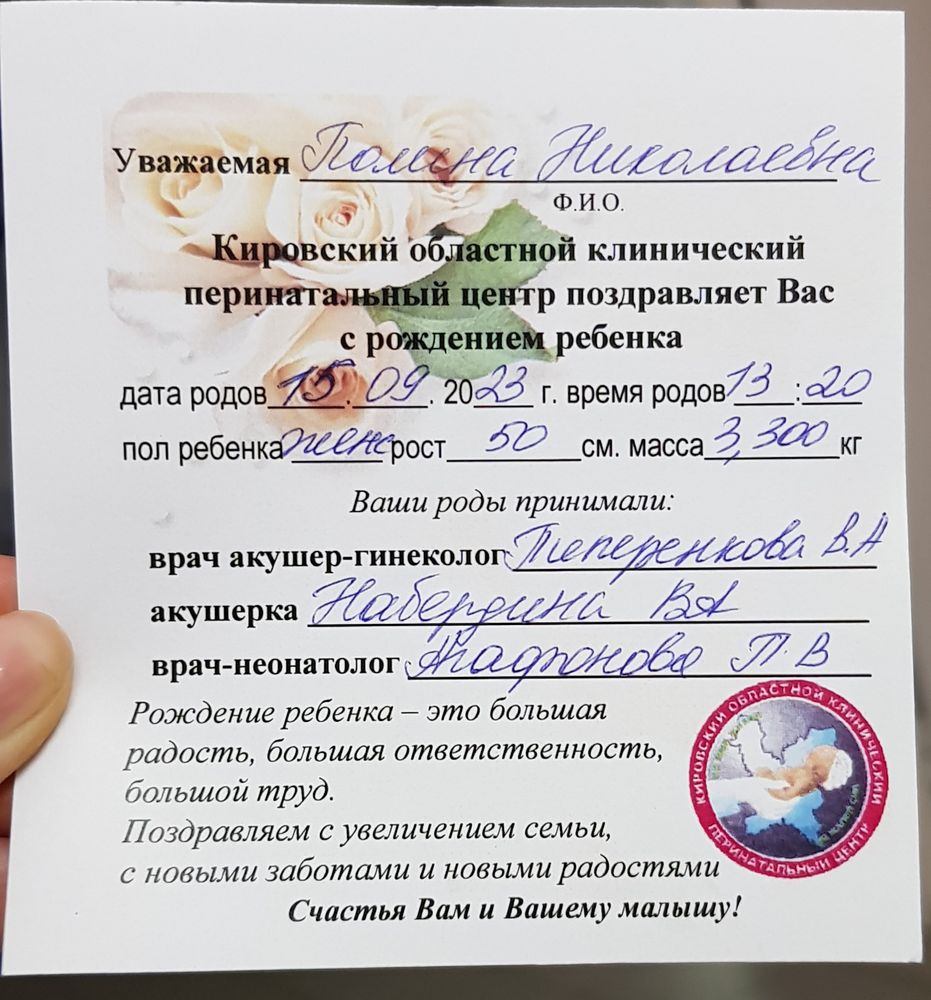 Уважаемая Полина Николаевна
Ф.И.О.
Кировский областной клинический
перинатальный центр поздравляет Вас
с рождением ребенка
дата родов 15.09.2023 г. время родов 13:20
пол ребенка жен рост 50 см. масса 3,300 кг
Ваши роды принимали:
врач акушер-гинеколог Теперенкова В.А
акушерка Набердина ВА
врач-неонатолог Агафонова П.В
Рождение ребенка – это большая
радость, большая ответственность,
большой труд.
Поздравляем с увеличением семьи,
с новыми заботами и новыми радостями
Счастья Вам и Вашему малышу!
КИРОВСКИЙ ОБЛАСТНОЙ КЛИНИЧЕСКИЙ
ПЕРИНАТАЛЬНЫЙ ЦЕНТР